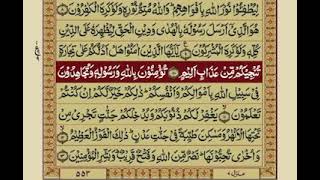 لِيُطْفِـُٔوْا نُوْرَ اللّٰهِ بِاَفْوَاهِهِمْ وَاللّٰهُ مُتِمُّ نُوْرِهٖ وَلَوْ كَرِهَ الْكٰفِرُوْنَ ۝
هُوَ الَّذِیْۤ اَرْسَلَ رَسُوْلَهٗ بِالْهُدٰی وَدِیْنِ الْحَقِّ لِیُظْهِرَهٗ عَلَی الدِّیْنِ
كُلِّهٖ وَلَوْ كَرِهَ الْمُشْرِكُوْنَ ۝ یٰۤاَیُّهَا الَّذِیْنَ اٰمَنُوْا هَلْ اَدُلُّكُمْ عَلٰی تِجَارَةٍ
تُنْجِیْكُمْ مِّنْ عَذَابٍ اَلِیْمٍ ۝ تُؤْمِنُوْنَ بِاللّٰهِ وَرَسُوْلِهٖ وَتُجَاهِدُوْنَ
فِیْ سَبِیْلِ اللّٰهِ بِاَمْوَالِكُمْ وَاَنْفُسِكُمْ ؕ ذٰلِكُمْ خَیْرٌ لَّكُمْ اِنْ كُنْتُمْ
تَعْلَمُوْنَ ۝ یَغْفِرْ لَكُمْ ذُنُوْبَكُمْ وَیُدْخِلْكُمْ جَنّٰتٍ تَجْرِیْ مِنْ
تَحْتِهَا الْاَنْهٰرُ وَمَسٰكِنَ طَیِّبَةً فِیْ جَنّٰتِ عَدْنٍ ؕ ذٰلِكَ الْفَوْزُ الْعَظِیْمُ ۝
وَاُخْرٰی تُحِبُّوْنَهَا ؕ نَصْرٌ مِّنَ اللّٰهِ وَفَتْحٌ قَرِیْبٌ ؕ وَبَشِّرِ الْمُؤْمِنِیْنَ ۝
۵۵۳
منزل ۷